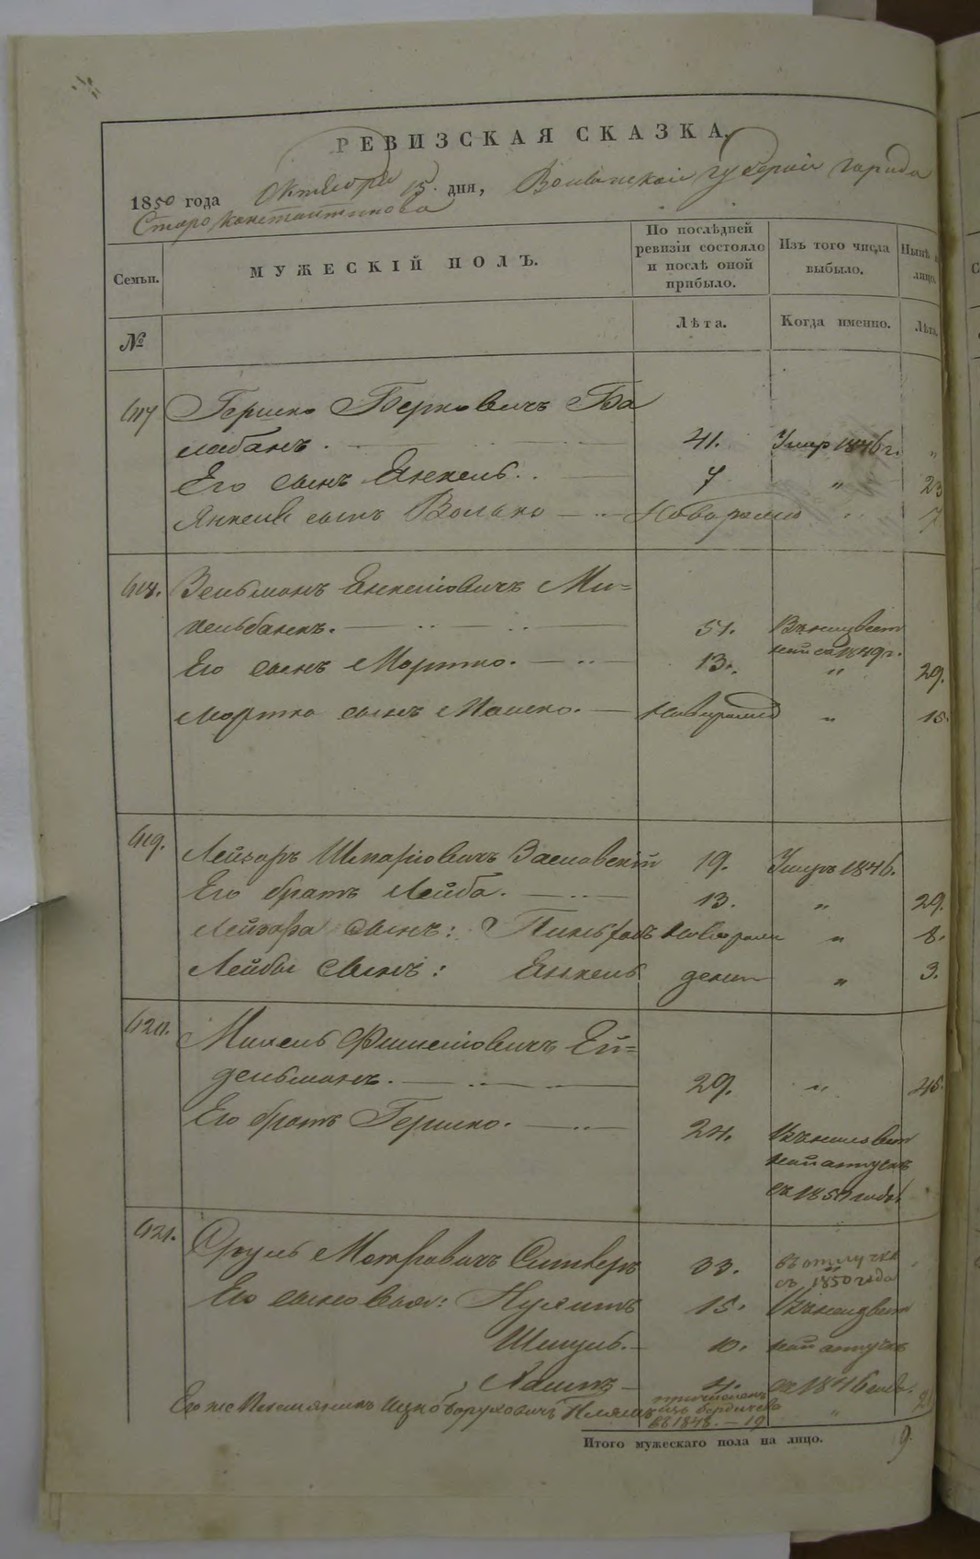 РЕВИЗСКАЯ СКАЗКА.
1850 года Октября 15. дня, Волынской губернии города
Староконстантинова
Семьи.
МУЖЕСКІЙ ПОЛЪ.
По послѣдней ревизіи состояло и послѣ оной прибыло.
Изъ того числа выбыло.
Нынѣ
лицо.
№
Лѣта.
Когда именно.
Лѣта.
Гершко Берковичъ Ба
лабанъ. 41. Умр 1846 г. "
Его сынъ Янкель. 7 " 23
Янкеля сынъ Волько Новорожд " 7
418. Зельманъ Янкелiовичъ Ми=
хельбанкъ. 51.
Его сынъ Мортко. 13. " 29.
Мортко сынъ Мошко. " 15.
419. Лейзаръ Шмарiовичъ Заславскiй 19. Умръ 1846.
Его братъ Лейба. 13. " 29.
Лейзара сынъ: новорож " 8.
Лейбы сынъ: Янкель дены " 3.
420. Михель Фишелiовичъ Ей=
дельманъ. 29. " 45.
Его братъ Гершко. 24. въ неизвест
ной отлучкѣ
съ 1850 года
421. Сруль 33. въ отлучкѣ
съ 1850 года
Его сыновья: 15. въ неизвест
Шмуль. 10. ной отлучкѣ
4. съ 1846 года.
Его же племянникъ Ицко Боруховичъ причисленъ
изъ Бердичева
въ 1848. — 19 "
Итого мужескаго пола на лицо. 9.